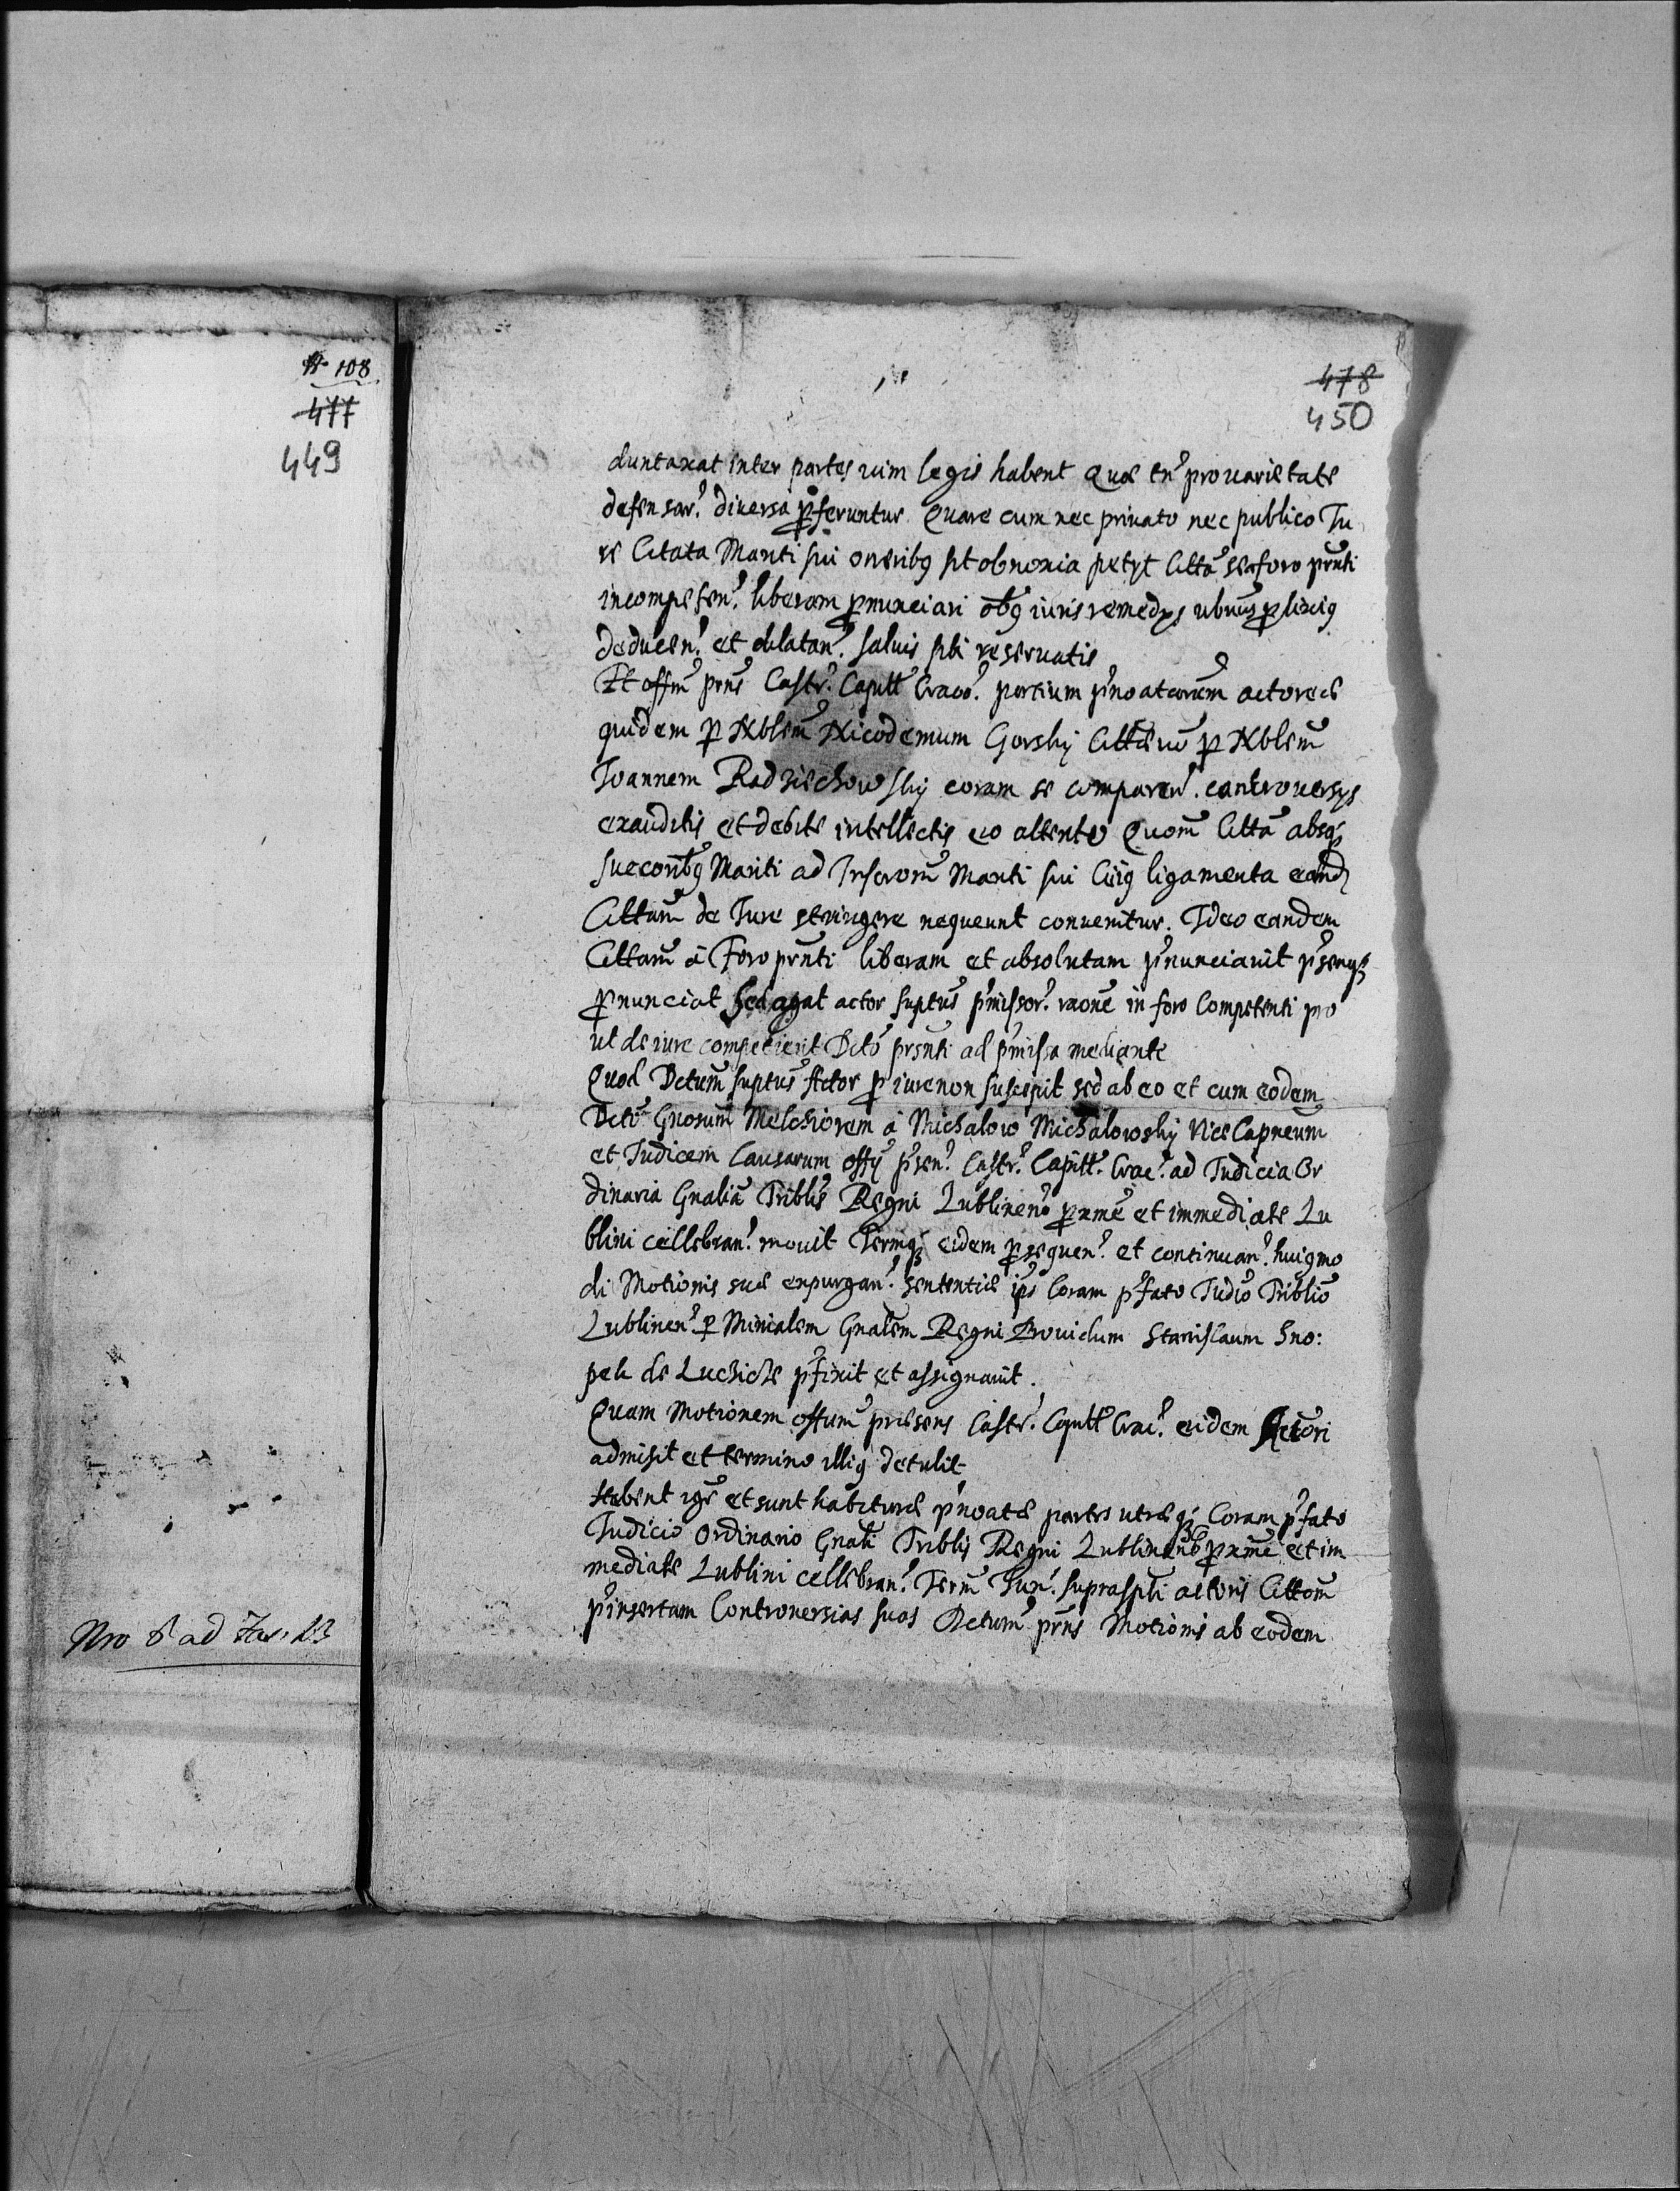 108
477
449
Nro 8 ad Fas: 23
478
450
duntaxat inter partes vim legis habent Quæ tn̄ pro varietate
defensar. diversa p̄feruntur Quare cum nec privato nec publico Iu
re Citata Mariti sui oneribq sit obnoxia petyt Cittā se a foro prn̄ti
incompeten. liberam pronunciari obq iuris remedys prolixiq
deducen. et dilatan. salvis sibi reservatis
Et offm̄ prns̄ Castr. Capitt Craco. partium p̄noatarum actoreæ
quidem p Nblem̄ Nicodemum Gorsky Cittæ vō p Nblem̄
Ioannem Radziechowsky coram se comparen. controversys
exauditis et debite intellectis eo attento Quom̄ Citta absq
succoribq Mariti ad Inscrom̄ Mariti sui Cuiq ligamenta eand
Cittam de Iure stringere nequeunt convenitur. Ideo eandem
Cittam à Foro prn̄ti liberam et absolutam p̄nunciavit p̄senq
pronunciat Sed agat actor suptus p̄missor. raone in foro Competenti pro
ut de iure competierit Dcto prsnti ad p̄missa mediante
Quod Dctum suptus Actor p iure non suscepit sed ab eo et cum eodem
Dcto Gnosum Melchiorem à Michalow Michalowsky Vice Capneum
et Iudicem Causarum offy p̄sen. Castr. Capitt. Crac. ad Iudicia Or
dinaria Gnalia Triblis Regni Lublinen p̄xme et immediate Lu
blini cellebran. movit Termq eidem p̄sequen. et continuan. huiqmo
di Motionis suæ expurgan. sententiæ ips Coram p̄fato Iudio Triblio
Lublinen. p Minialem Gnalem Regni Providum Stanislaum Sno:
pek de Luczicze p̄fixit et assignavit.
Quam Motionem offium præsens Castr. Capitt Crac. eidem Actori
admisit et termino illiq detulit
Habent igr̄ et sunt habituræ p̄noatæ partes utræq Coram p̄fato
Iudicio Ordinario Gnali Triblis Regni Lublinen p̄xme et im
mediate Lublini cellebran. Term̄ Iux. suprascpti actoris Cittom̄
p̄insertam Controversias suas Dctum prns̄ Motionis ab eodem